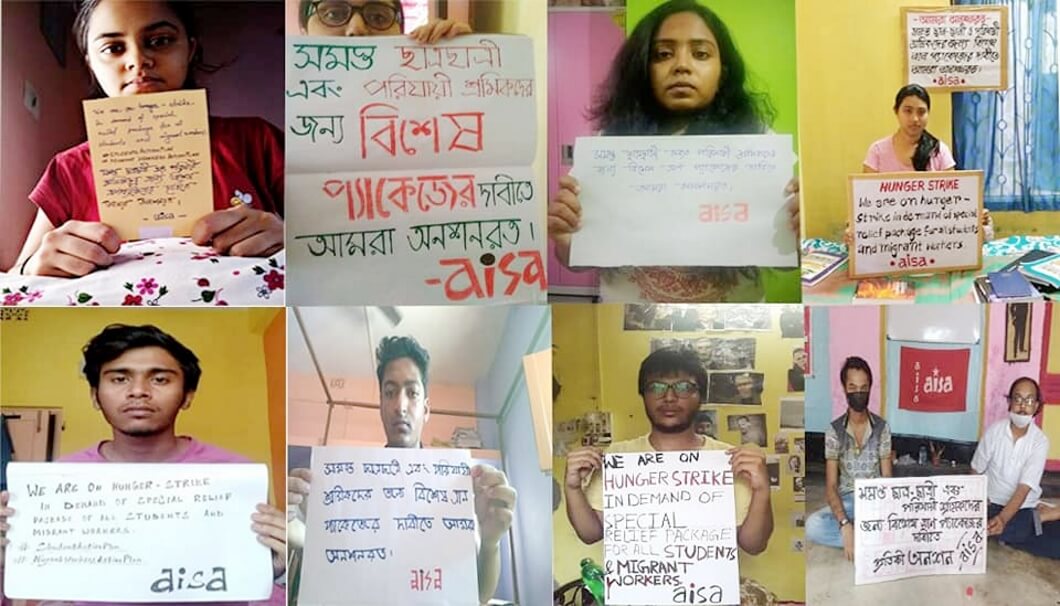 We are on hunger-strike
in demand of special
relief package for all
students and migrant workers
সমস্ত ছাত্রছাত্রী
এবং পরিযায়ী শ্রমিকদের
জন্য বিশেষ
প্যাকেজের দাবীতে
আমরা অনশনরত।
-aisa
- aisa -
সমস্ত ছাত্রছাত্রী এবং পরিযায়ী শ্রমিকদের
জন্য বিশেষ ত্রাণ প্যাকেজের দাবিতে
আমরা অনশনরত।
aisa
আমরা অনশনরত
• aisa •
HUNGER STRIKE
We are on hunger-
strike in demand of special
relief package for all students
and migrant workers
• aisa •
WE ARE ON HUNGER-STRIKE
IN DEMAND OF SPECIAL RELIEF
PACKAGE OF ALL STUDENTS AND
MIGRANT WORKERS.
# StudentActionPlan
# MigrantWorkersActionPlan
aisa
সমস্ত ছাত্রছাত্রী এবং পরিযায়ী
শ্রমিকদের জন্য বিশেষ ত্রাণ
প্যাকেজের দাবীতে আমরা
অনশনরত।
aisa
WE ARE ON
HUNGER STRIKE
IN DEMAND OF
SPECIAL
RELIEF PACKAGE
FOR ALL STUDENTS
& MIGRANT
WORKERS
aisa
aisa
aisa
সমস্ত ছাত্র-ছাত্রী এবং
পরিযায়ী শ্রমিকদের
জন্য বিশেষ ত্রাণ প্যাকেজের
দাবীতে
প্রতিকী অনশন aisa